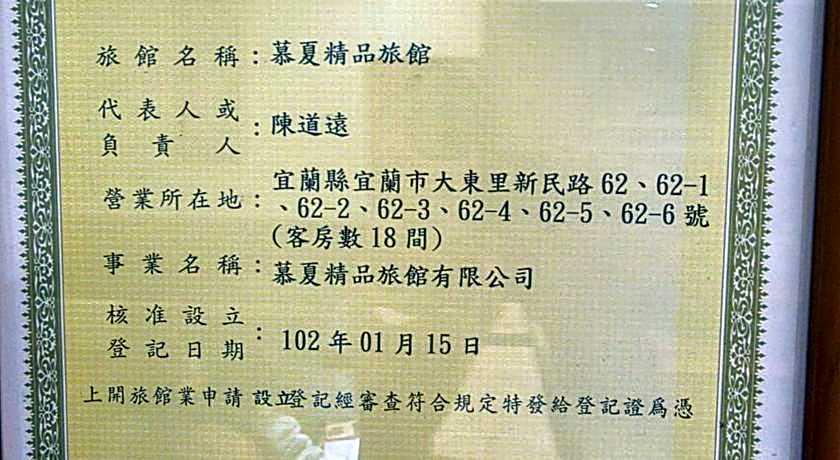 旅館名稱：慕夏精品旅館
代表人或
負責人：陳道遠
營業所在地：宜蘭縣宜蘭市大東里新民路62、62-1
、62-2、62-3、62-4、62-5、62-6號
(客房數18間)
事業名稱：慕夏精品旅館有限公司
核准設立
登記日期：102年01月15日
上開旅館業申請設立登記經審查符合規定特發給登記證爲憑